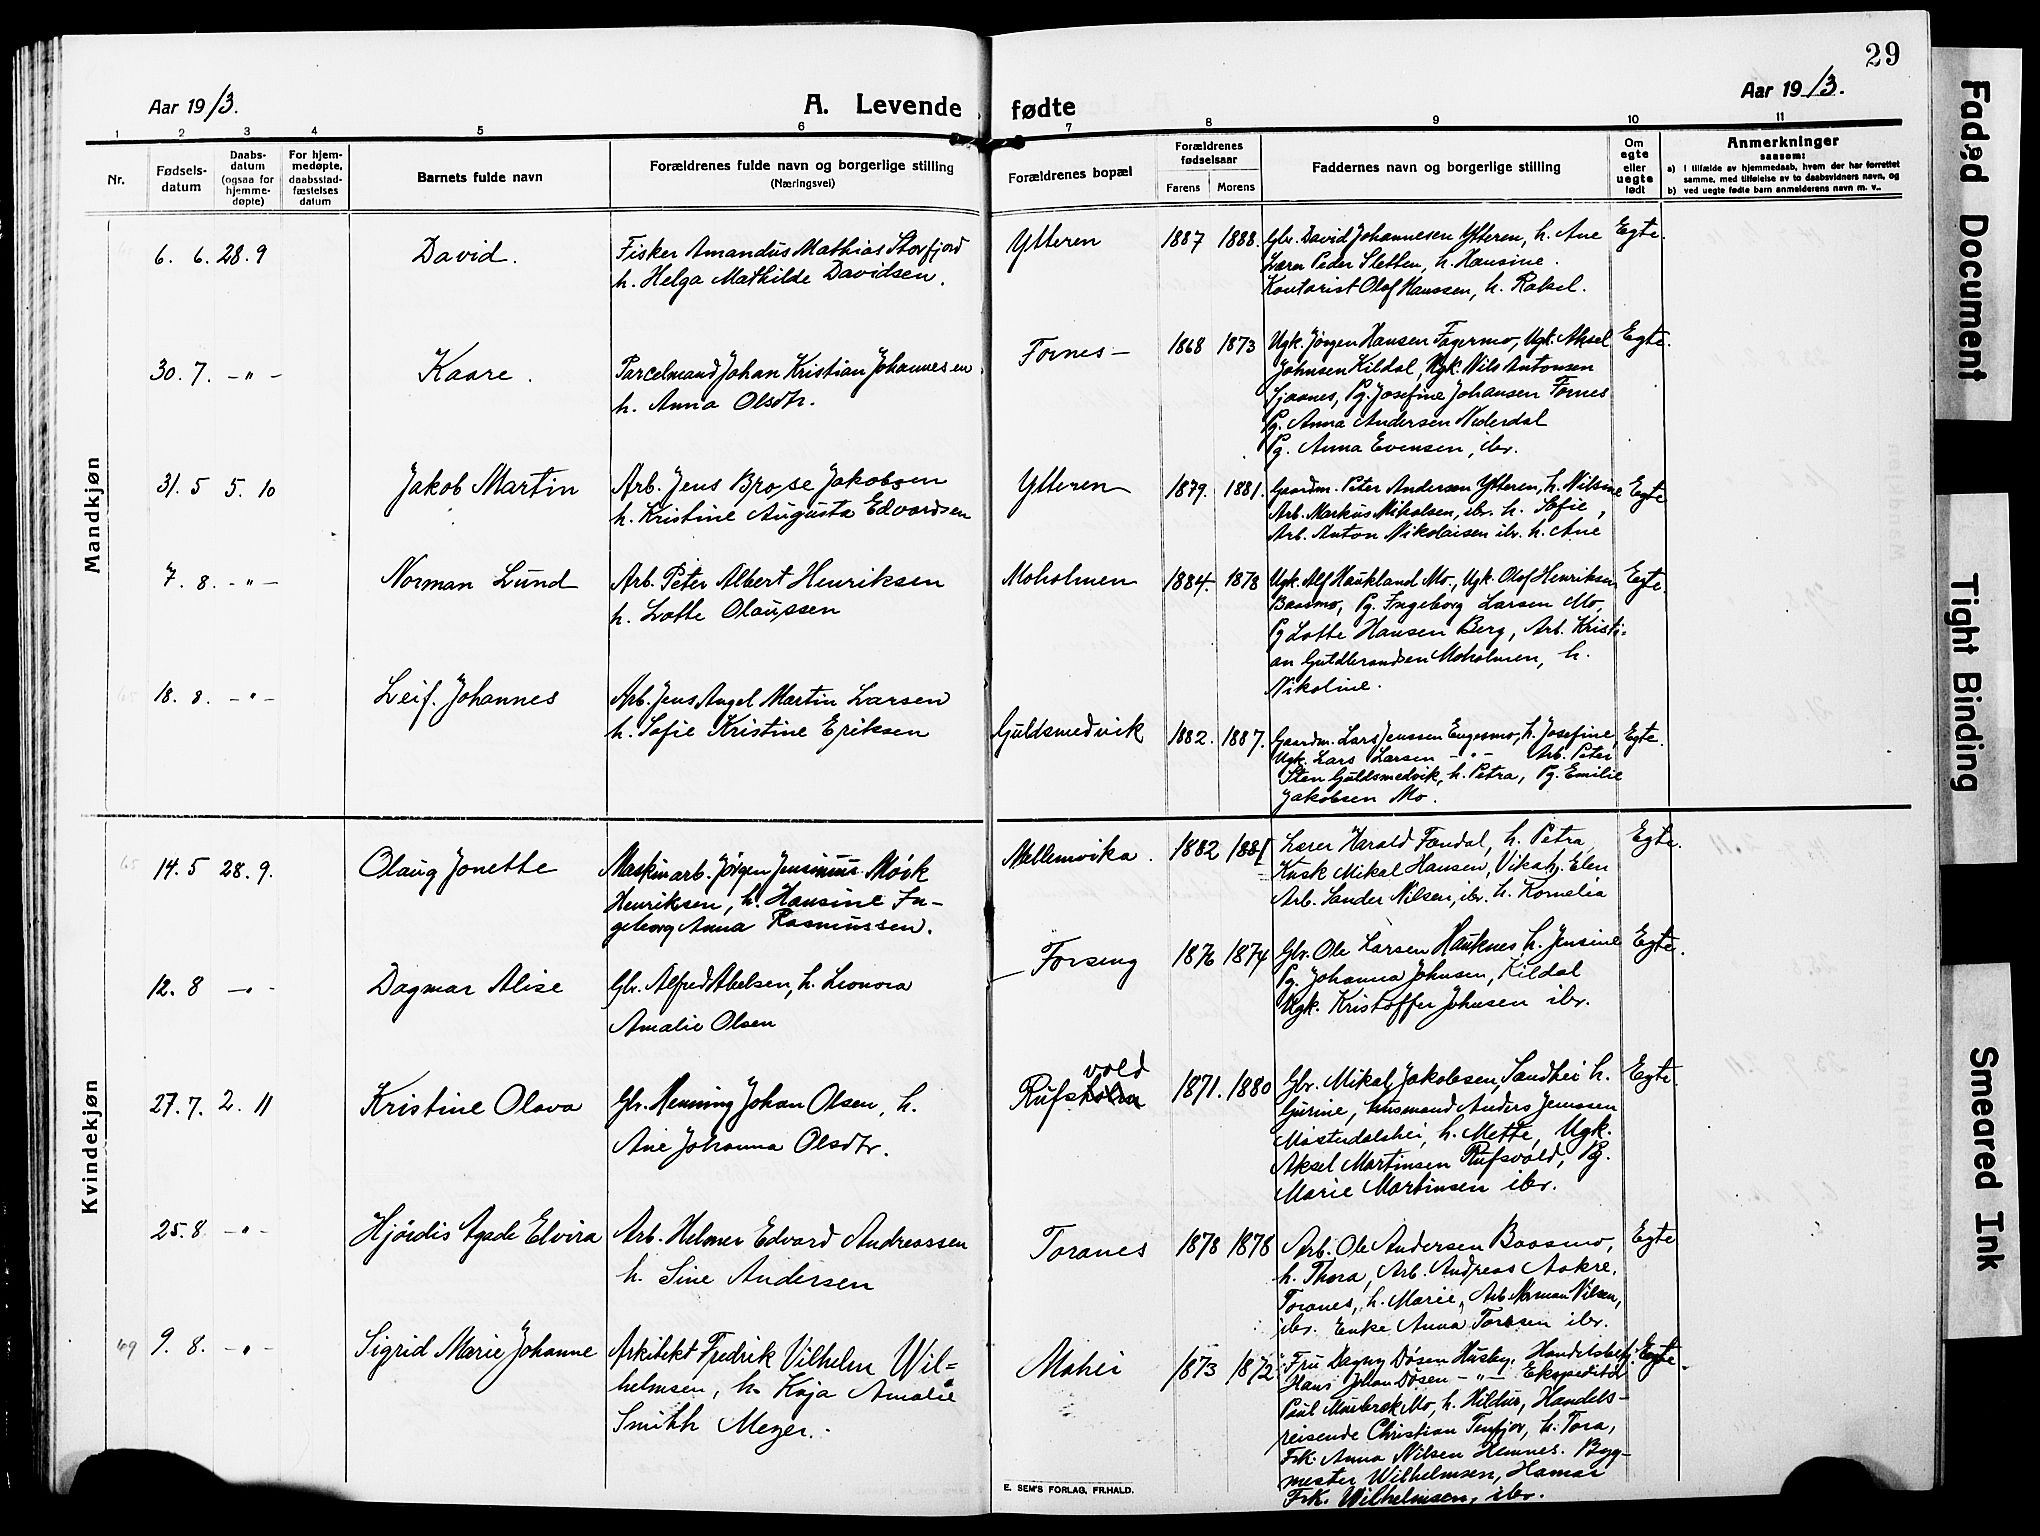 29
Aar 1913.
A. Levende fødte
Aar 1913.
1 2 3 4 5 6 7 8 9 10 11
Nr.
Fødsels-
datum
Daabs-
datum
(ogsaa for
hjemme-
døpte)
For hjem-
medøpte,
daabsstad-
fæstelses
datum
Barnets fulde navn
Forældrenes fulde navn og borgerlige stilling
(Næringsvei)
Forældrenes bopæl
Forældrenes
fødselsaar
Farens Morens
Faddernes navn og borgerlige stilling
Om
egte
eller
uegte
født
Anmerkninger
saasom:
a) i tilfælde av hjemmedaab, hvem der har forrettet
samme, med tilføielse av to daabsvidners navn, og
b) ved uegte fødte barn anmelderens navn m. v..
Mandkjøn
6. 6. 28. 9 David. Fisker Amandus Mathias Storfjord
h. Helga Mathilde Davidsen.
Ytteren 1887 1888. Gbr. David Johannesen Ytteren, h. Ane Egte.
Lærer Peder Sletten, h. Hansine.
Kontorist Olof Hanssen, h. Rakel.
30. 7. -"- Kaare. Parcelmand Johan Kristian Johannesen
h. Anna Olsdtr.
Fornes- 1868 1873 Ugk. Jørgen Hansen Fagermo, Ugk. Aksel Egte.
Johnsen Kildal, Ugk. Nils Antonsen
Sjaanes, Pg. Josefine Johansen Fornes
Pg. Anna Andersen Nederdal
Pg. Anna Evensen, ibr.
31. 5 5. 10 Jakob Martin Arb. Jens Brose Jakobsen
h. Kristine Augusta Edvardsen
Ytteren 1879. 1881. Gaardm. Peter Andersen Ytteren, h. Nilsine Egte
Arb. Markus Nikolsen, ibr. h. Sofie,
Arb. Anton Nikolaisen ibr. h. Ane
7. 8. -"- Norman Lund Arb. Peter Albert Henriksen
h. Lotte Olaussen
Moholmen 1884. 1878 Ugk. Alf Haukland Mo, Ugk. Olof Henriksen Egte.
Baasmo, Pg. Ingeborg Larsen Mo,
Pg Lotte Hansen Berg, Arb. Kristi-
an Guldbrandsen Moholmen, h.
Nikoline.
18. 8. -"- Leif Johannes Arb. Jens Angel Martin Larsen
h. Sofie Kristine Eriksen
Guldsmedvik 1882. 1887. Gaardm. Lars Jenssen Engesmo, h. Josefine Egte.
Ugk. Lars Larsen -"- Arb. Peter
Sten Guldsmedvik, h. Petra, Pg. Emilie
Jakobsen Mo.
Kvindekjøn
14. 5 28. 9. Olaug Jonette Maskinarb. Jørgen Jensinius Mørk
Henriksen, h. Hansine In-
geborg Anna Rasmussen.
Mellemvika. 1882 1881 Lærer Harald Fondal, h. Petra, Egte.
Kusk Mikal Hansen, Vika h. Elen
Arb. Sander Nilsen, ibr. h. Kornelia
12. 8 -"- Dagmar Alise Gbr. Alfred Abelsen, h. Leonora
Amalie Olsen
Forseng 1876 1874 Gbr. Ole Larsen Hauknes, h. Jensine Egte.
Pg. Johanna Johnsen, Kildal
Ugk. Kristoffer Johnsen ibr.
27. 7. 2. 11 Kristine Olava Gbr. Henning Johan Olsen, h.
Ane Johanna Olsdtr.
vold
Rufsholm 1871. 1880 Gbr. Mikal Jakobsen, Sandhei h. Egte.
Gurine, husmand Anders Jenssen
Mosterdalshei, h. Mette, Ugk.
Aksel Martinsen Rufsvold, Pg.
Marie Martinsen ibr.
25. 8 -"- Hjørdis Agade Elvira Arb. Helmer Edvard Andreassen
h. Sine Andersen
Toranes 1878 1878 Arb. Ole Andersen Baasmo, Egte
h. Thora, Arb. Andreas Aakre,
Toranes, h. Marie, Arb. Norman Nilsen,
ibr. Enke Anna Toresen ibr.
49 9. 8. -"- Sigrid Marie Johanne Arkitekt Fredrik Vilhelm Wil=
helmsen, h. Kaja Amalie
Smith Meyer.
Mohei 1873 1872 Fru Dagny Døsen Husby, Handelsbetj. Egte.
Hans Johan Døsen -"- Ekspeditør
Paul Moubæk Mo, h. Hildur, Handels-
reisende Christian Tenfjor, h. Tora,
Frk. Anna Nilsen Hemnes. Byg-
mester Wilhelmsen, Hamar
Frk. Wilhelmsen, ibr.
E. SEM'S FORLAG, FR.HALD.
Faded Document
Tight Binding
Smeared Ink